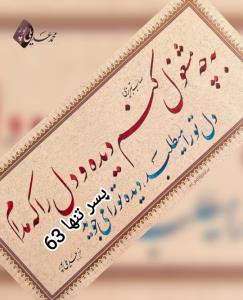 صائب تبریزی
به چه مشغول کنم دیده و دل را که مدام
دل تو را می‌طلبد، دیده تو را می‌جوید
پسر تنها 63